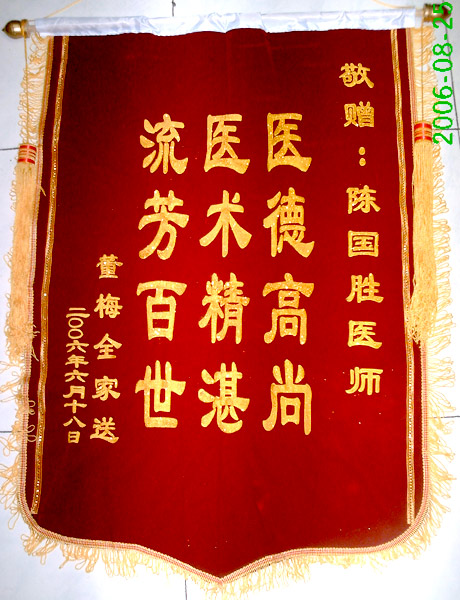 敬赠：陈国胜医师
医德高尚
医术精湛
流芳百世
董梅全家送
二〇〇六年六月十八日
2006-08-26